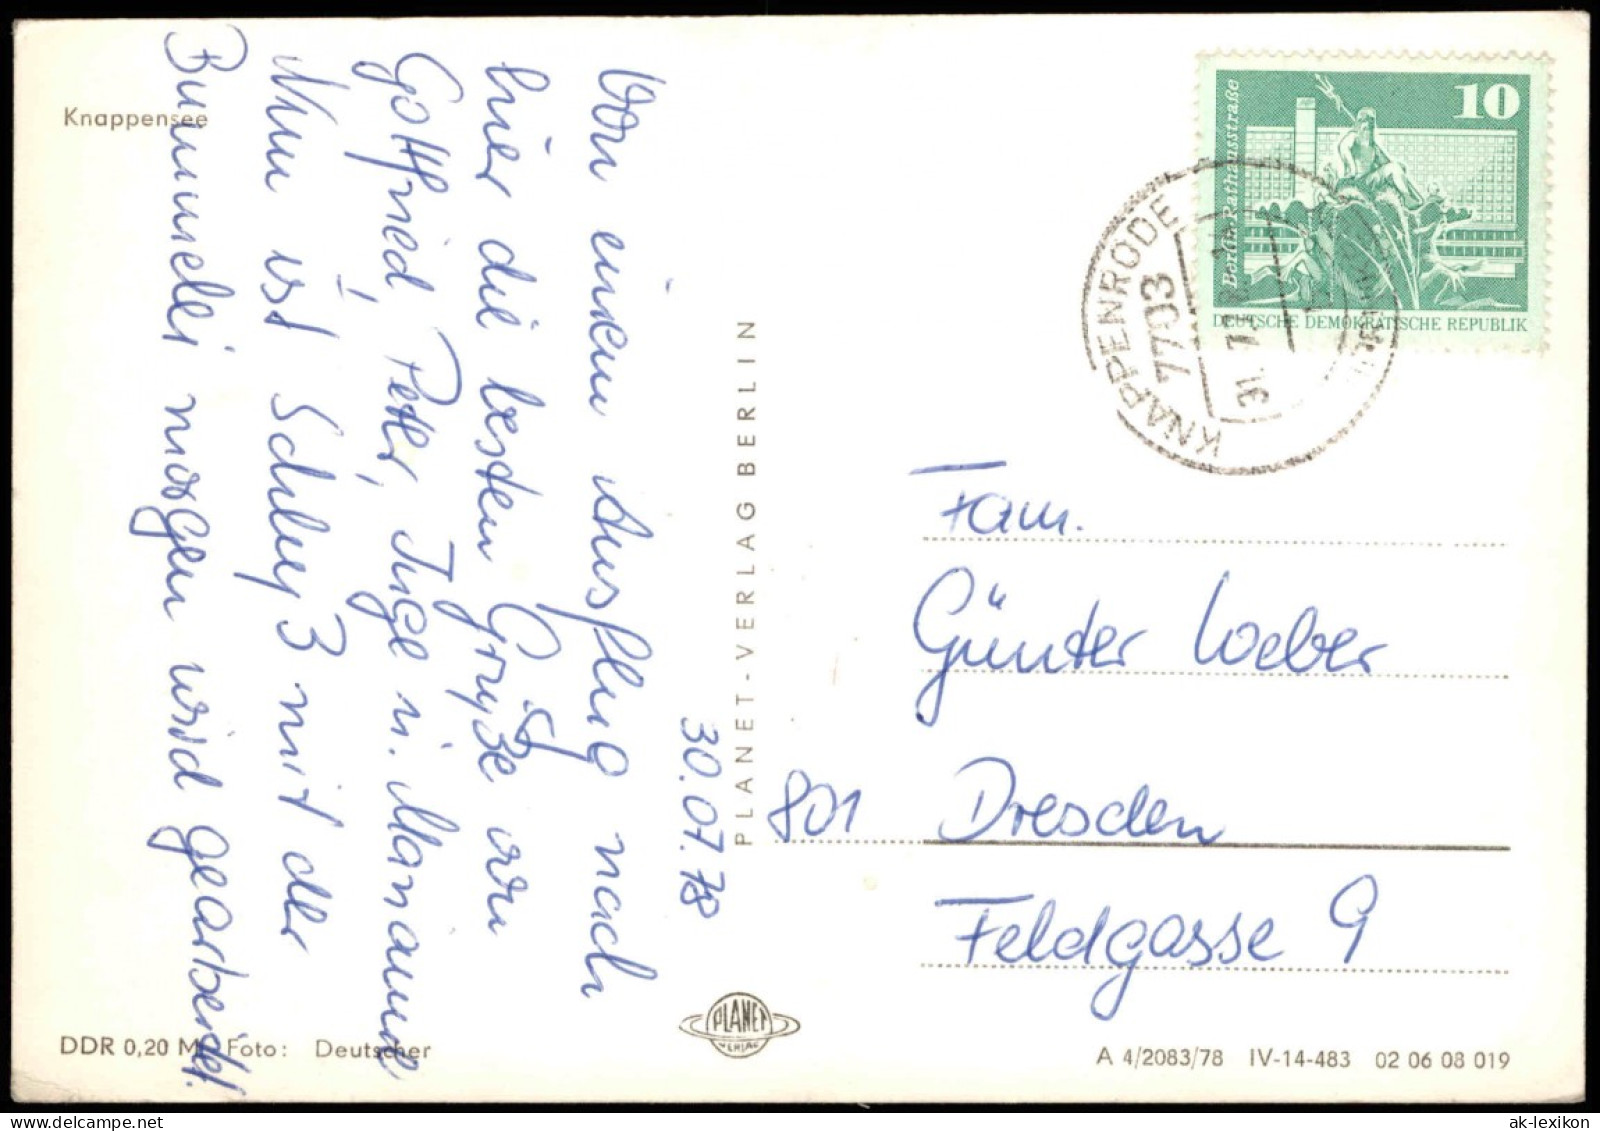 Knappensee
30.07.78
Von einem Ausflug nach
hier die besten Grüße von
Gottfried, Peter, Inge u. Marianne
Nun ist Schluß mit der
Bummelei morgen wird gearbeitet.
DDR 0,20 M Foto: Deutscher
PLANET-VERLAG BERLIN
PLANET
VERLAG
10
Berlin, Rathausstraße
DEUTSCHE DEMOKRATISCHE REPUBLIK
KNAPPENRODE
7703
31. 7. 78
Fam.
Günter Weber
801 Dresden
Feldgasse 9
A 4/2083/78 IV-14-483 02 06 08 019
ak-lexikon